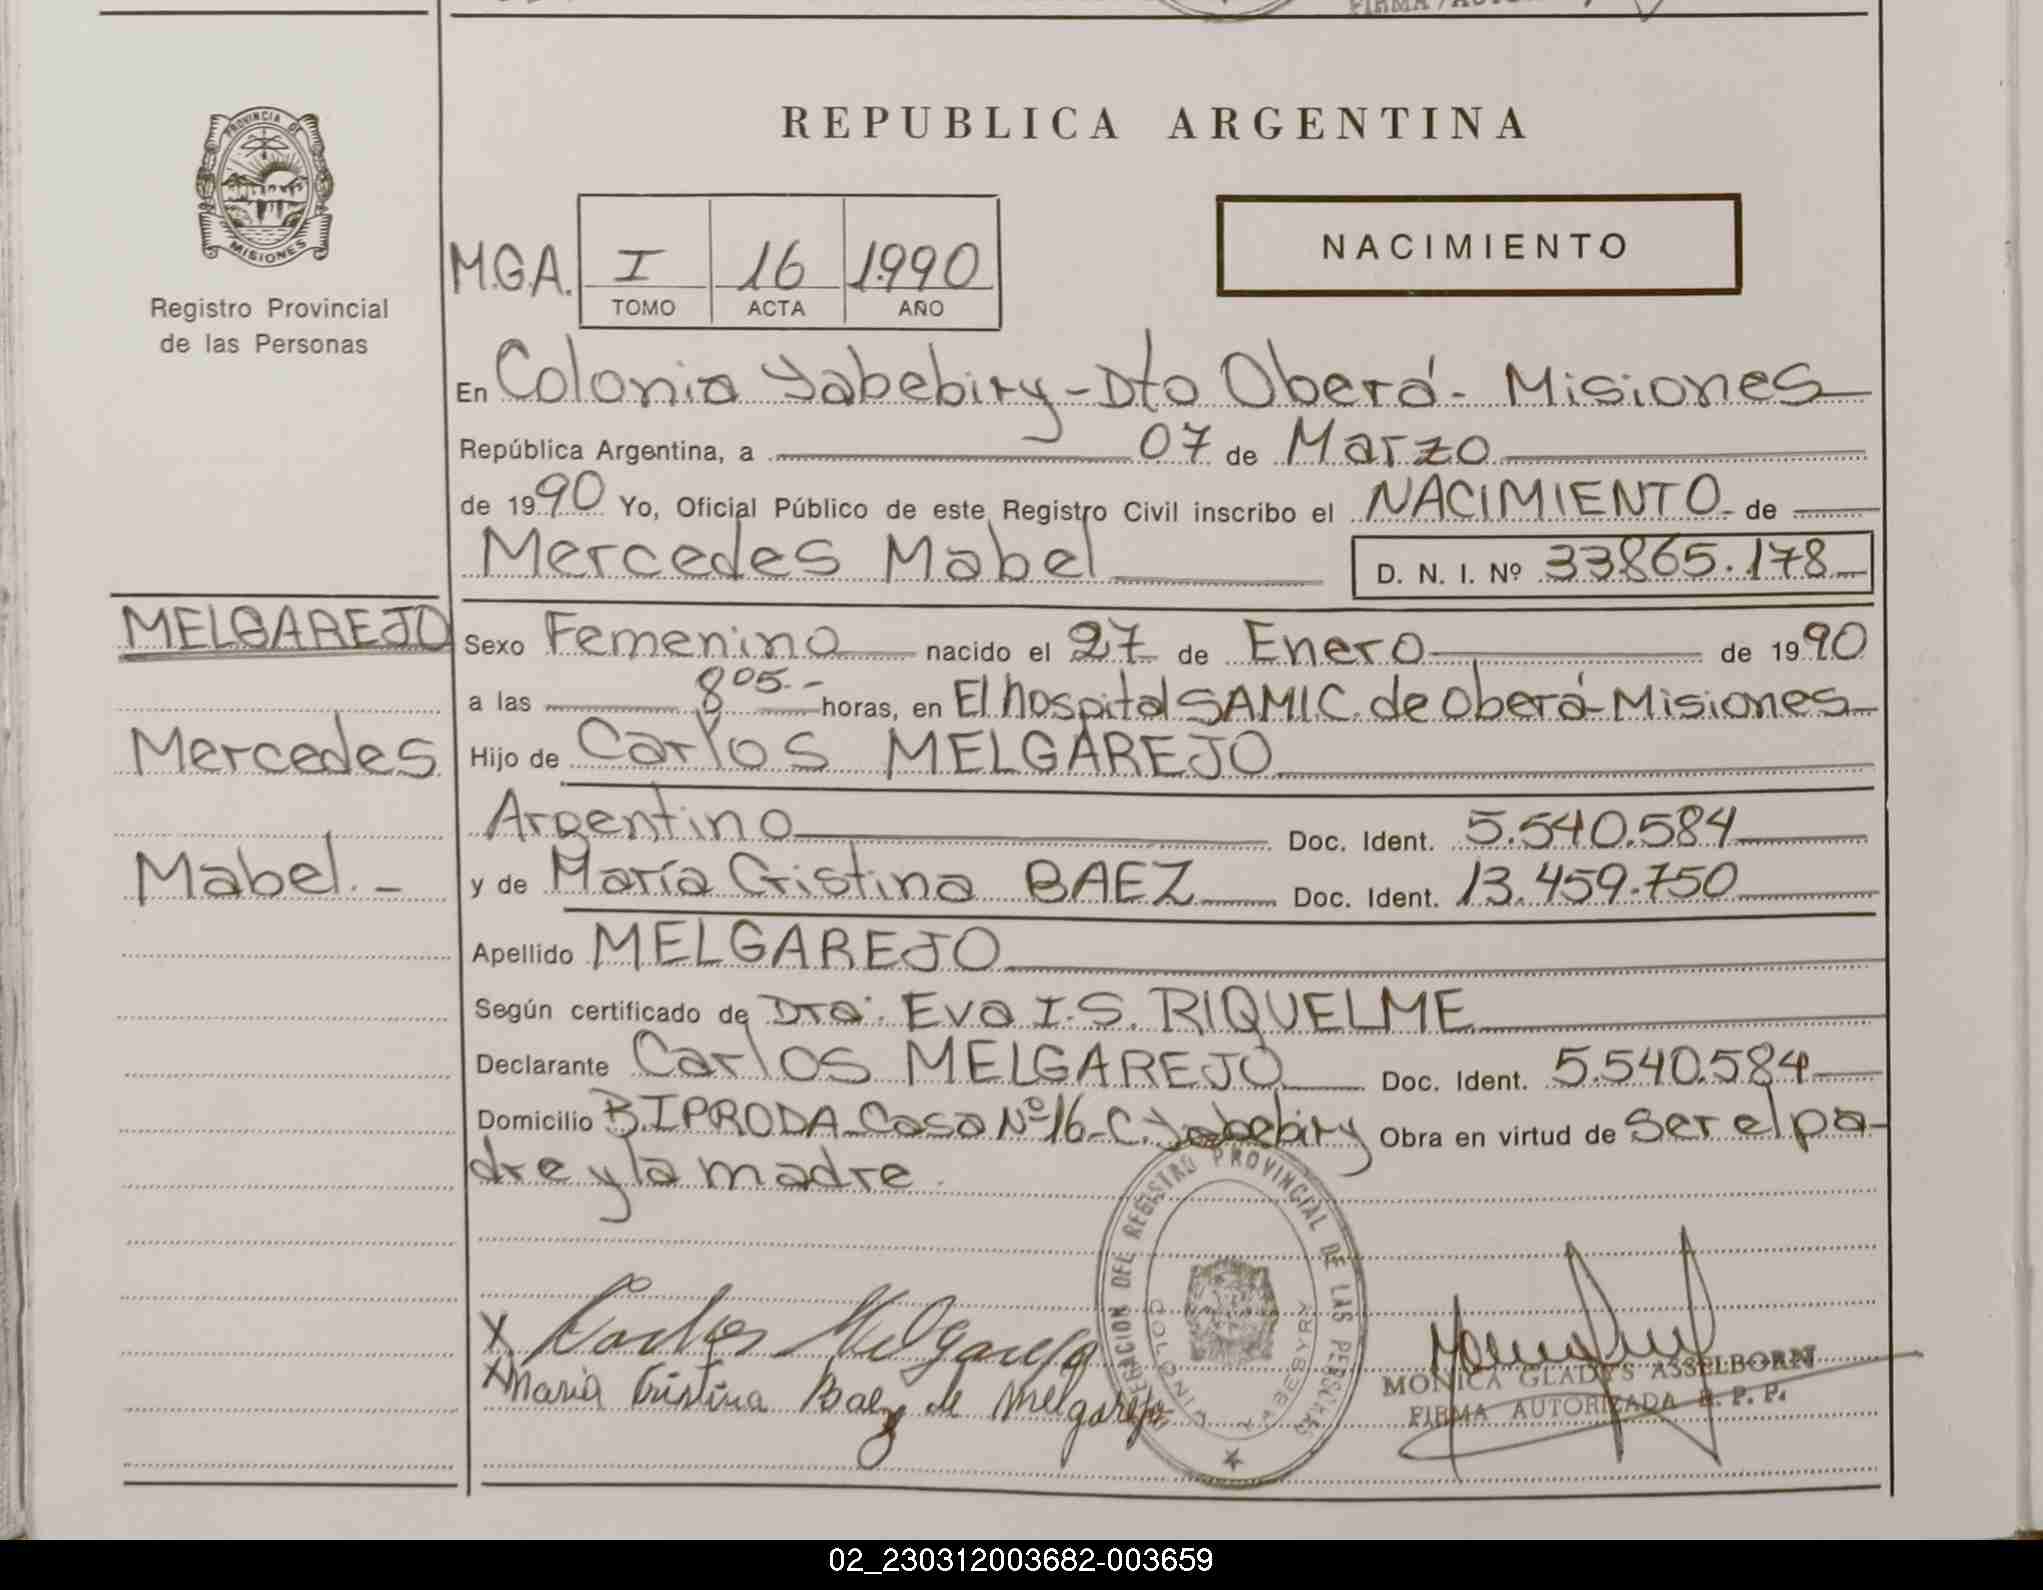 FIRMA AUTORI
PROVINCIA DE
MISIONES
Registro Provincial
de las Personas
REPUBLICA ARGENTINA
NACIMIENTO
M.G.A. I 16 1.990
TOMO ACTA AÑO
En Colonia Yabebiry - Dto Oberá - Misiones
República Argentina, a 07 de Marzo
de 1990 Yo, Oficial Público de este Registro Civil inscribo el NACIMIENTO - de
Mercedes Mabel D. N. I. Nº 33865.178
MELGAREJO
Mercedes
Mabel. -
Sexo Femenino nacido el 27 de Enero de 1990
a las 8 05.- horas, en El hospital SAMIC. de Oberá - Misiones
Hijo de Carlos MELGAREJO
Argentino Doc. Ident. 5.540.584
y de María Cristina BAEZ Doc. Ident. 13.459.750
Apellido MELGAREJO
Según certificado de Dra. Eva I.S. RIQUELME
Declarante Carlos MELGAREJO Doc. Ident. 5.540.584
Domicilio B. IPRODA - Casa Nº 16 - C. Yabebiry Obra en virtud de ser el pa-
dre y la madre.
DELEGACION DEL REGISTRO PROVINCIAL DE LAS PERSONAS
COLONIA YABEBYRY
X Carlos Melgarejo
X Maria Cristina Baez de Melgarejo
MONICA GLADYS ASSELBORN
FIRMA AUTORIZADA R. P. P.
02_230312003682-003659